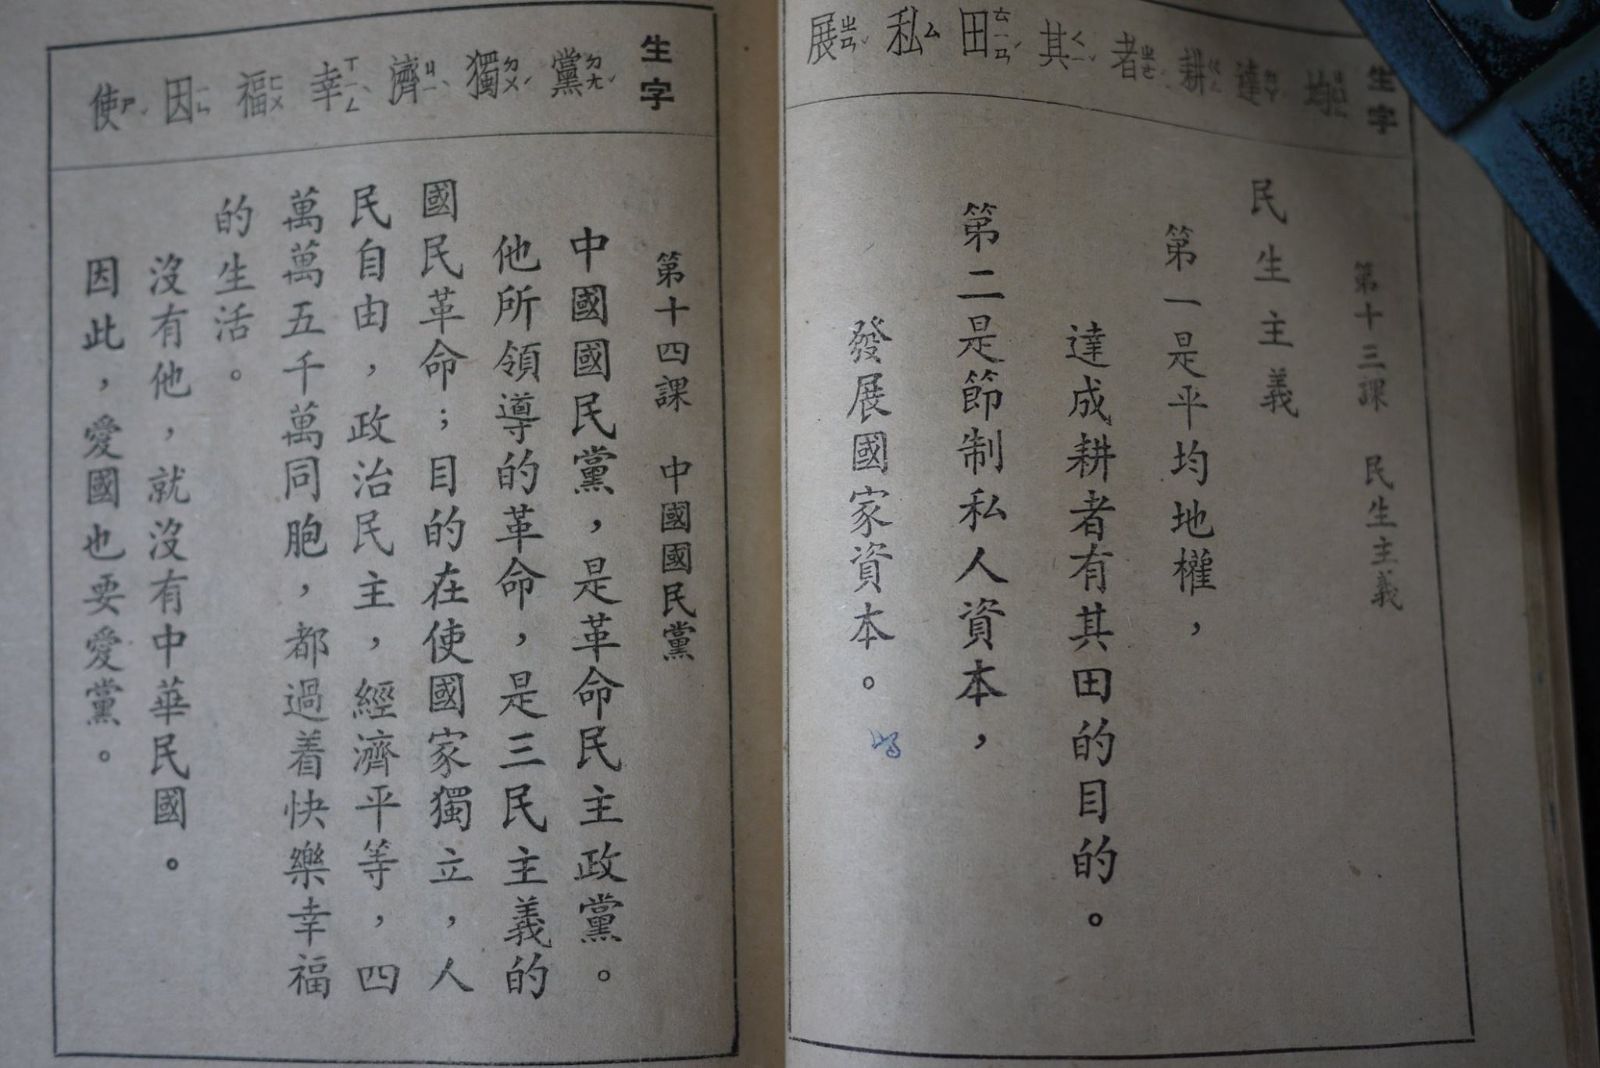 生字
均ㄐㄩㄣ 達ㄉㄚˊ 耕ㄍㄥ 者ㄓㄜˇ 其ㄑㄧˊ 田ㄊㄧㄢˊ 私ㄙ 展ㄓㄢˇ
第十三課 民生主義
民生主義
第一是平均地權，
達成耕者有其田的目的。
第二是節制私人資本，
發展國家資本。
生字
黨ㄉㄤˇ 獨ㄉㄨˊ 濟ㄐㄧˋ 幸ㄒㄧㄥˋ 福ㄈㄨˊ 因ㄧㄣ 使ㄕˇ
第十四課 中國國民黨
中國國民黨，是革命民主政黨。
他所領導的革命，是三民主義的
國民革命；目的在使國家獨立，人
民自由，政治民主，經濟平等，四
萬萬五千萬同胞，都過着快樂幸福
的生活。
沒有他，就沒有中華民國。
因此，愛國也要愛黨。